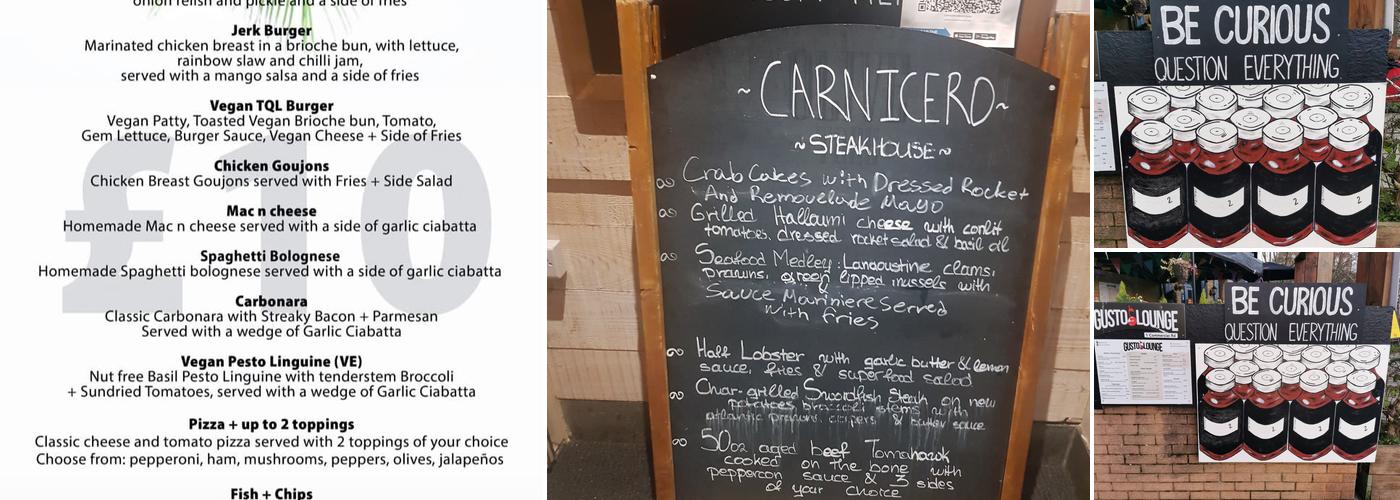 onion relish and pickle and a side of fries
Jerk Burger
Marinated chicken breast in a brioche bun, with lettuce,
rainbow slaw and chilli jam,
served with a mango salsa and a side of fries
Vegan TQL Burger
Vegan Patty, Toasted Vegan Brioche bun, Tomato,
Gem Lettuce, Burger Sauce, Vegan Cheese + Side of Fries
Chicken Goujons
Chicken Breast Goujons served with Fries + Side Salad
£10
Mac n cheese
Homemade Mac n cheese served with a side of garlic ciabatta
Spaghetti Bolognese
Homemade Spaghetti bolognese served with a side of garlic ciabatta
Carbonara
Classic Carbonara with Streaky Bacon + Parmesan
Served with a wedge of Garlic Ciabatta
Vegan Pesto Linguine (VE)
Nut free Basil Pesto Linguine with tenderstem Broccoli
+ Sundried Tomatoes, served with a wedge of Garlic Ciabatta
Pizza + up to 2 toppings
Classic cheese and tomato pizza served with 2 toppings of your choice
Choose from: pepperoni, ham, mushrooms, peppers, olives, jalapeños
Fish + Chips
~ CARNICERO ~
~ STEAKHOUSE ~
Crab Cakes with Dressed Rocket
And Removelade Mayo
Grilled Halloumi cheese with confit
tomatoes, dressed rocket salad & basil oil
Seafood Medley: Langoustine clams,
prawns, green lipped mussels with
Sauce Mariniere Served
with fries
Half Lobster with garlic butter & lemon
sauce, fries & superfood salad
Char-grilled Swordfish Steak on new
potatoes, broccoli stems with
atlantic prawns, capers & butter sauce
50oz aged beef Tomahawk
cooked on the bone with
peppercon sauce & 3 sides
of your choice
BE CURIOUS
QUESTION EVERYTHING
2
2
2
2
BE CURIOUS
QUESTION EVERYTHING
GUSTO LOUNGE
GUSTO LOUNGE
2
2
2
2